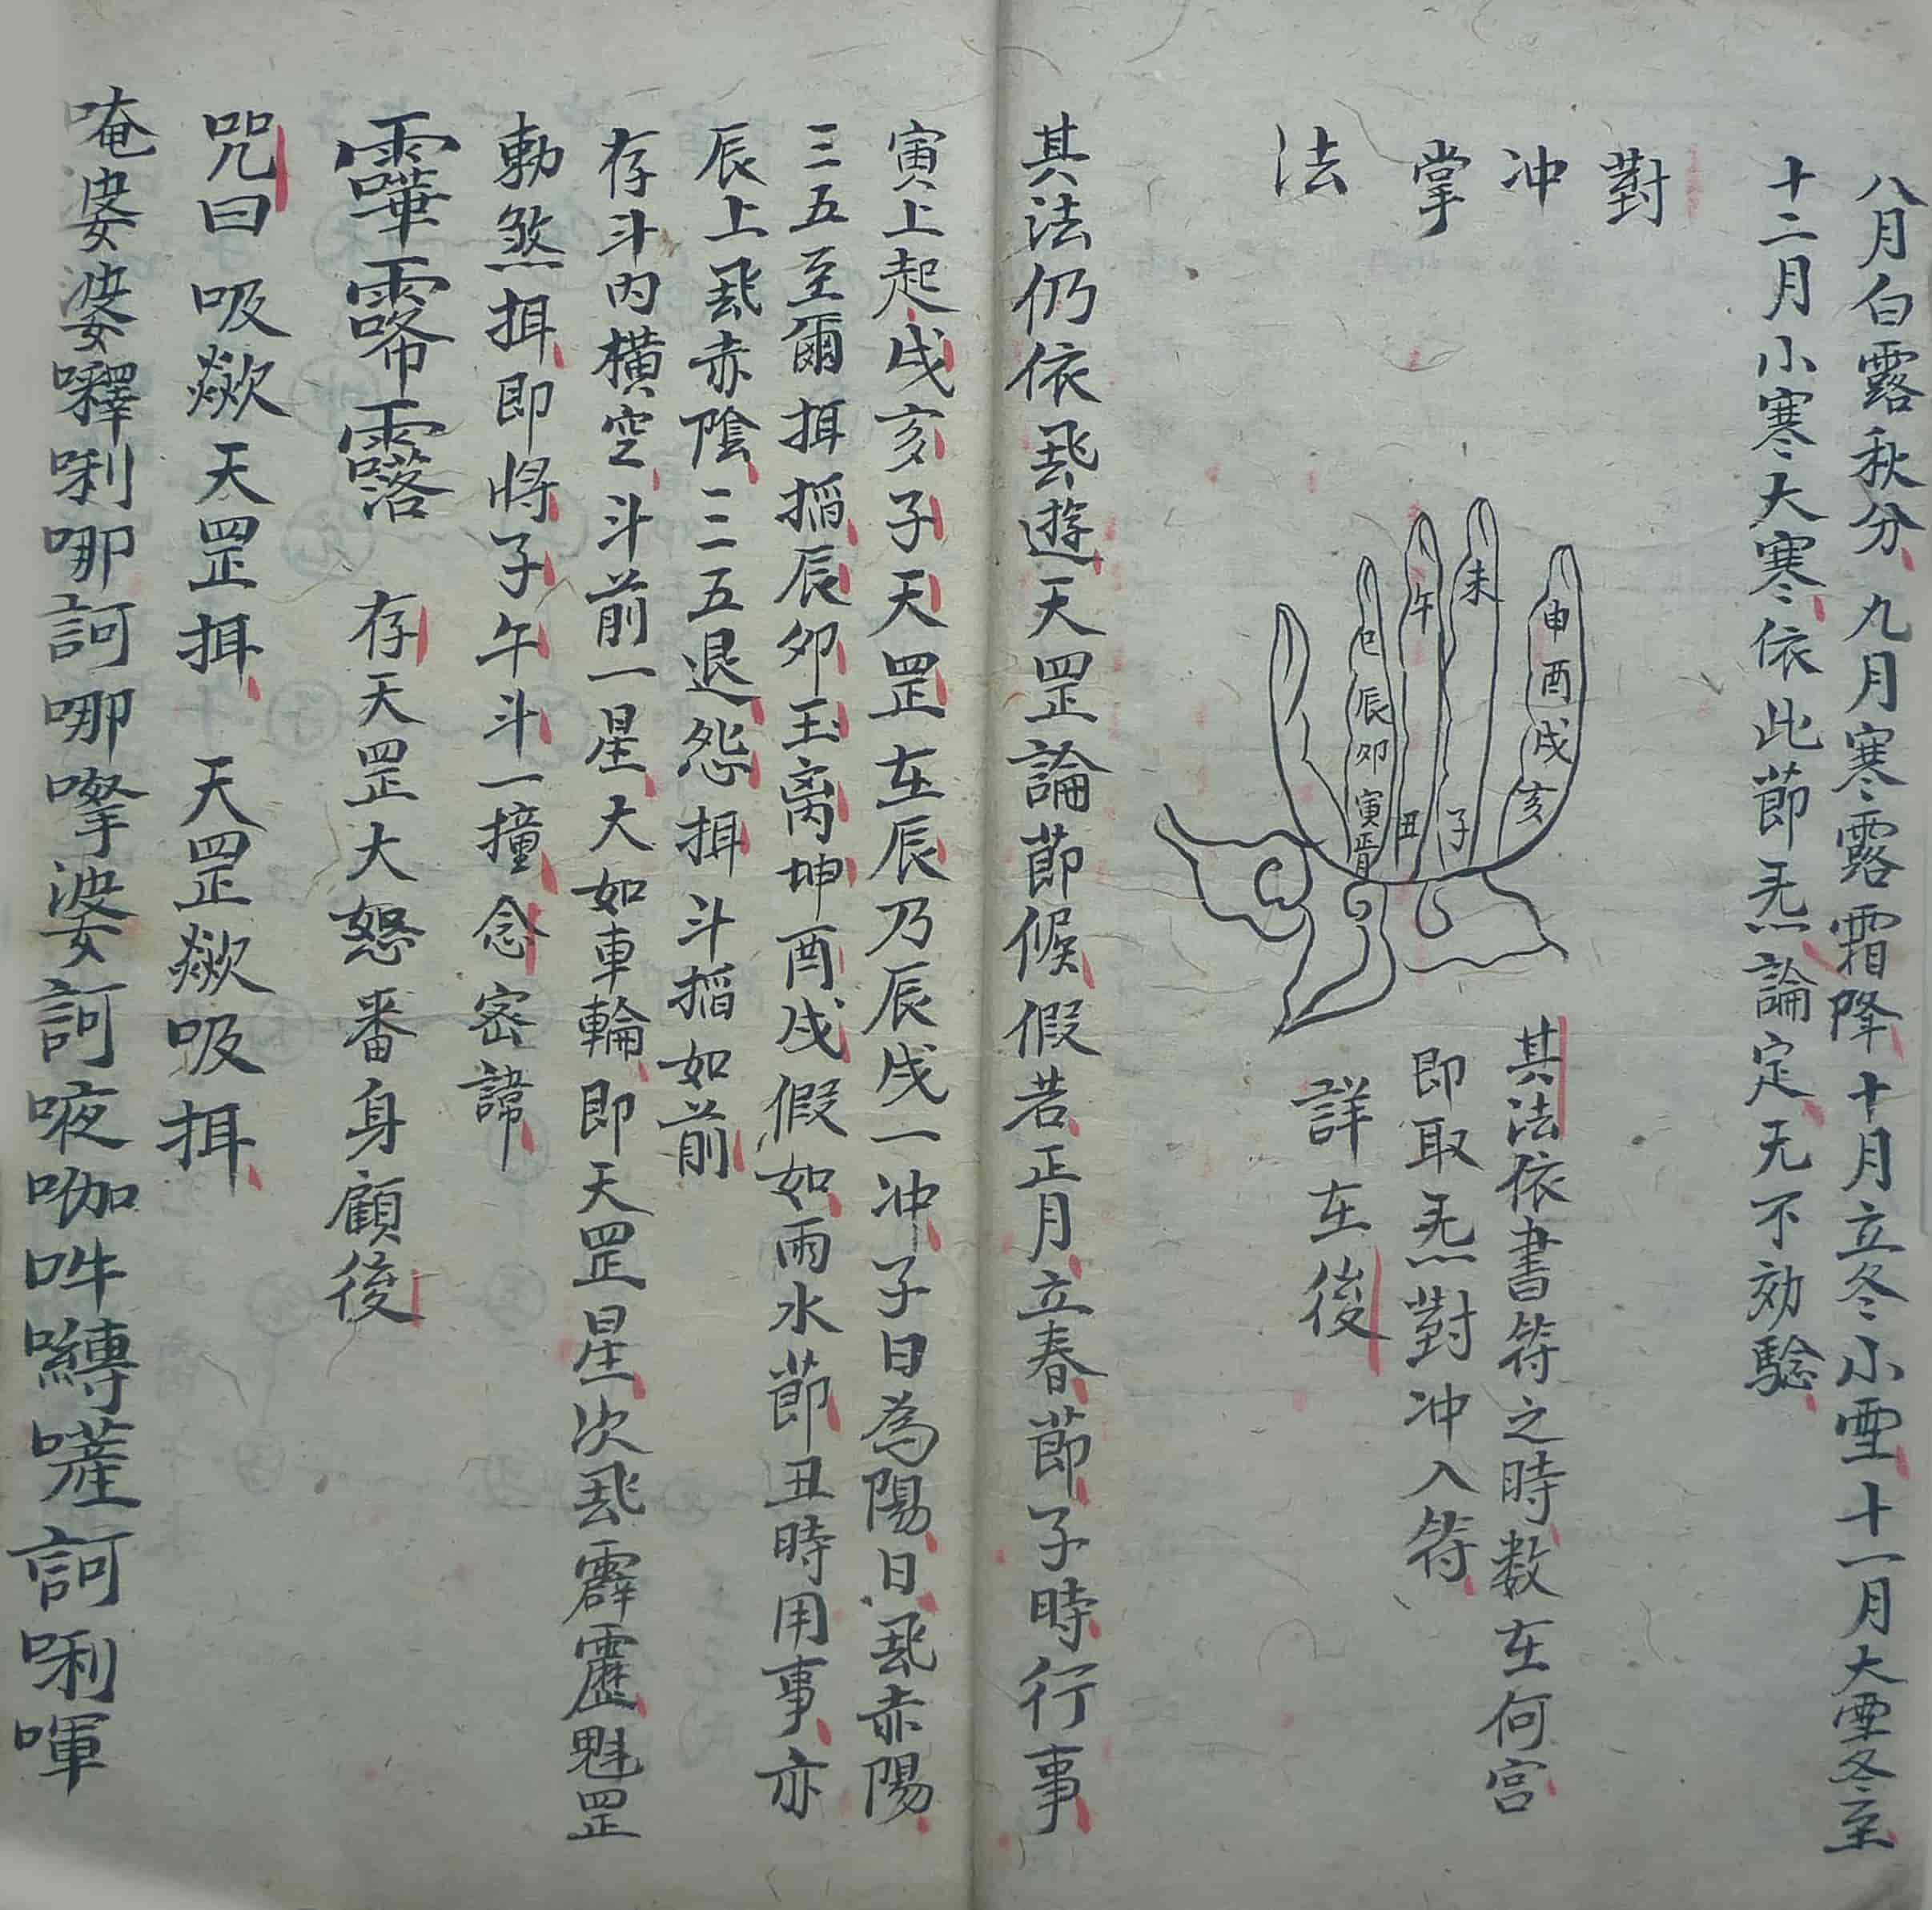 八月白露秋分九月寒露霜降十月立冬小雪十一月大雪冬至
十二月小寒大寒依此節炁論定无不効驗
對
冲
掌
法
申
酉
戌
亥
未
子
午
丑
巳
辰
卯
寅
其法依書符之時数在何宫
即取炁對冲入符
詳在後
其法仍依飛遊天罡論節候假若正月立春節子時行事
寅上起戌亥子天罡在辰乃辰戌一冲子日為陽日飛赤陽
三五至爾揖搯辰夘玉离坤酉戌假如雨水節丑時用事亦
辰上飛赤陰三五退怨揖斗搯如前
存斗内横空斗前一星大如車輪即天罡星次飛霹靂魁罡
勅煞揖即将子午斗一撞念宻諱
存天罡大怒番身顧後
咒曰吸歘天罡揖天罡歘吸揖
唵婆婆嚩唎哪訶哪㗚婆訶㖡咖吽囀嗟訶唎喗